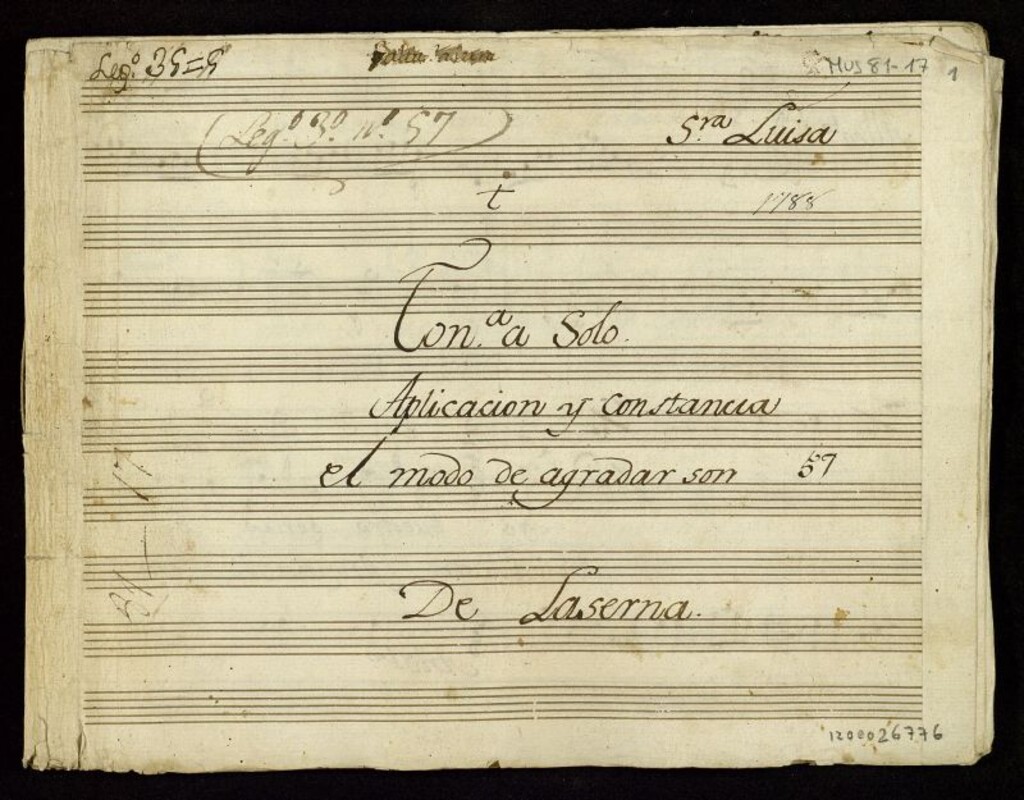 Leg.º 35=5
MUS 81-17
1
Leg.º 3.º n.º 57
S.ra Luisa
t
1788
Ton.a a Solo.
Aplicacion y constancia
el modo de agradar son 57
De Laserna.
1200026776